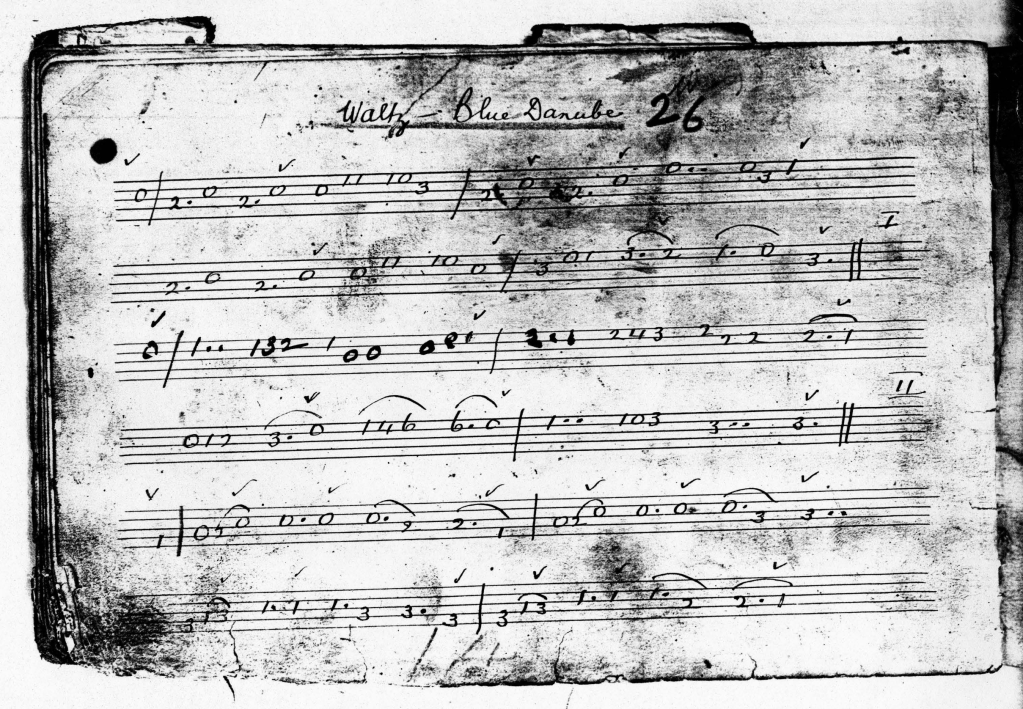 Waltz — Blue Danube 26
0 / 2. 0 2. 0 0 11 10 3 / 2. 0 2. 0 0.. 0 3 1
I
2. 0 2. 0 0 11 10 0 / 3 01 3. 2 1. 0 3. ||
0 / 1.. 132 1 00 0 01 / 2.. 1 243 2 2 2 2. 1
II
012 3. 0 146 6. 0 / 1... 103 3... 3. ||
1 | 020 0. 0 0. 2 2. 1 | 020 0. 0 0. 3 3...
3 13 1. 1 1. 3 3. 3 | 3 13 1. 1 1. 2 2. 1